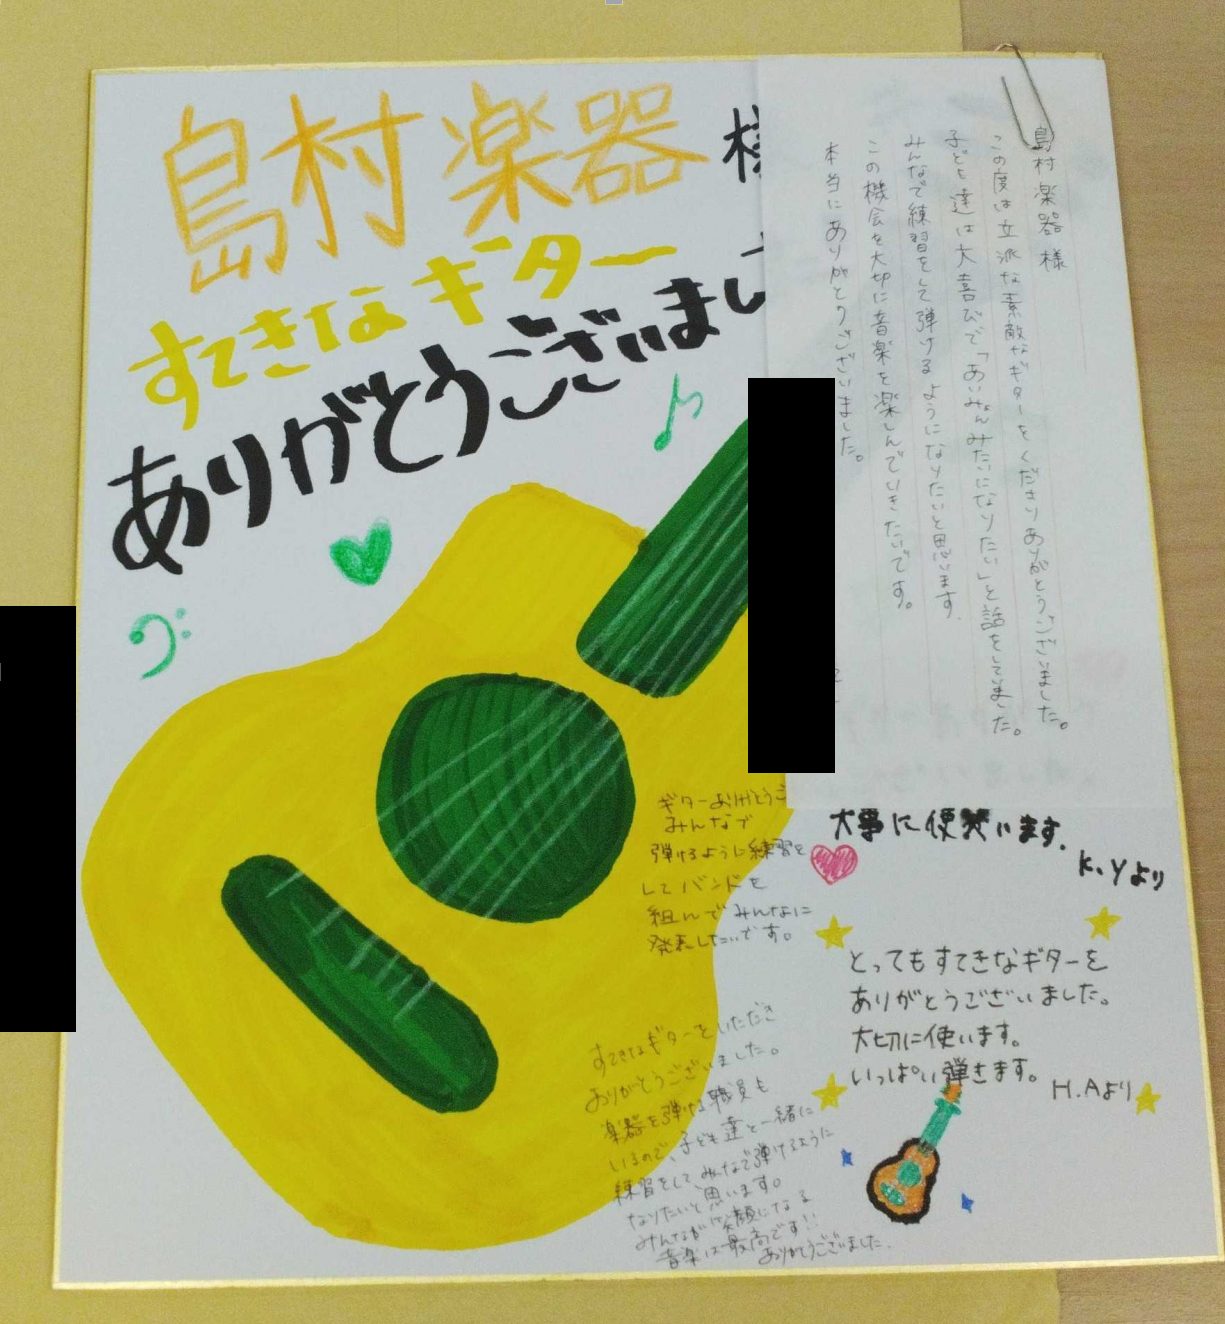 島村楽器 様
すてきなギター
ありがとうございました
島村楽器様
この度は立派な素敵なギターをくださりありがとうございました。
子ども達は大喜びで「あいみょんみたいになりたい」と話をしていました。
みんなで練習をして弾けるようになりたいと思います。
この機会を大切に音楽を楽しんでいきたいです。
本当にありがとうございました。
ギターありがとうご
みんなで
弾けるように練習を
してバンドを
組んでみんなに
発表したいです。
大事に使います。
K.Yより
とってもすてきなギターを
ありがとうございました。
大切に使います。
いっぱい弾きます。
H.Aより
すてきなギターをいただき
ありがとうございました。
楽器を弾ける職員も
いるので、子ども達と一緒に
練習をしてみんなで弾けるように
なりたいと思います。
みんなが笑顔になる
音楽は最高です!!
ありがとうございました。